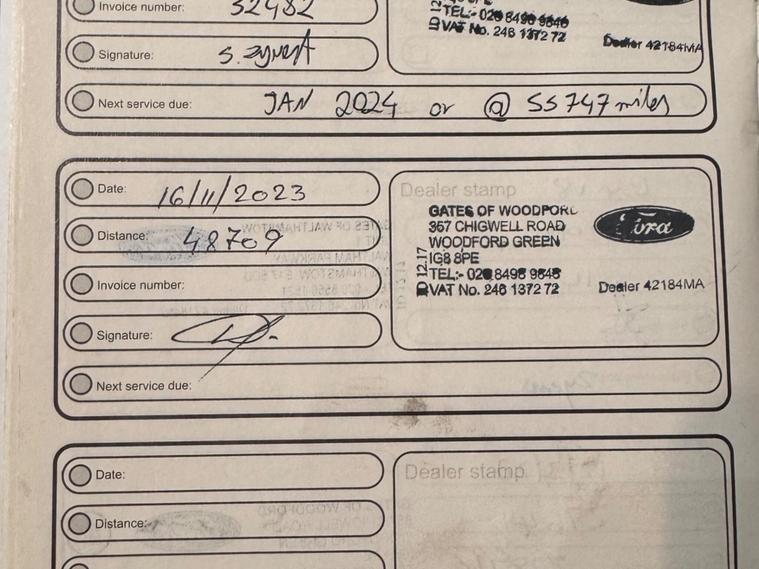 Invoice number: 32482
TEL:- 020 8498 9846
VAT No. 246 1372 72
Dealer 42184MA
Signature:
Next service due: JAN 2024 or @ 55747 miles
Date: 16/11/2023
Dealer stamp
GATES OF WOODFORD
367 CHIGWELL ROAD
WOODFORD GREEN
IG8 8PE
TEL:- 020 8498 9846
VAT No. 246 1372 72
ID 12.17
Ford
Dealer 42184MA
Distance: 48709
Invoice number:
Signature:
Next service due:
Date:
Dealer stamp
Distance: